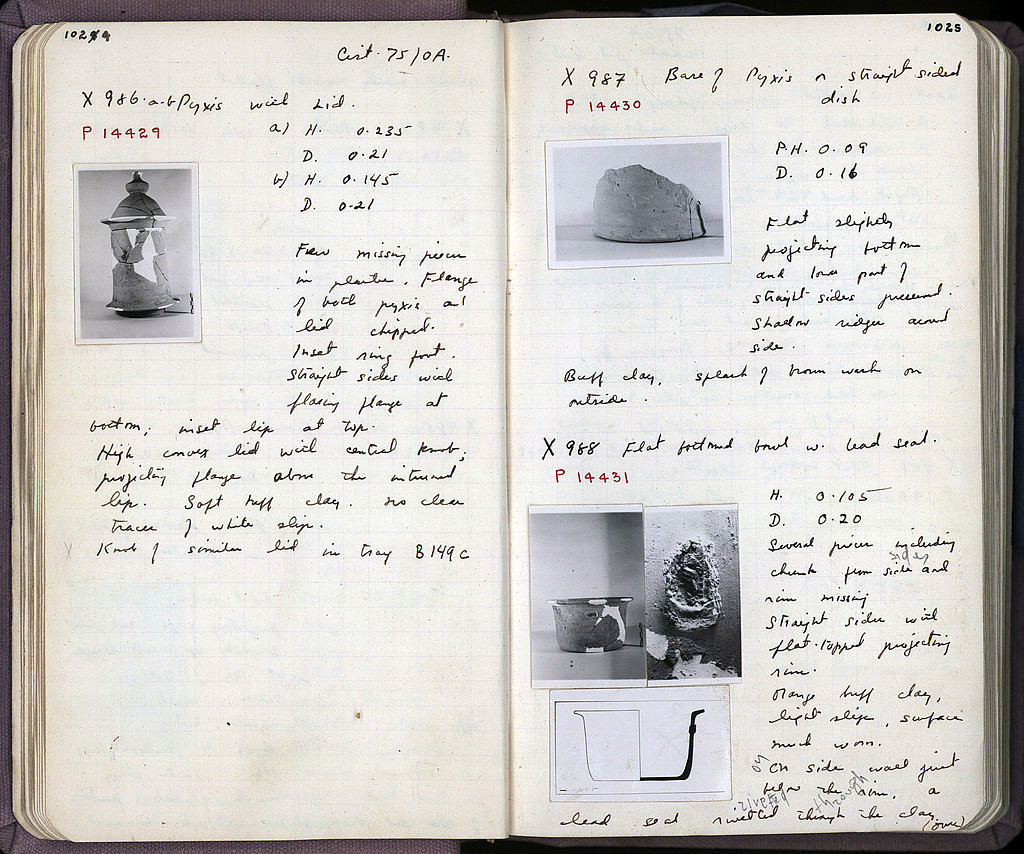 1024
Cist. 75/0A.
X 986. a-b Pyxis with Lid.
P 14429
a) H. 0.235
D. 0.21
b) H. 0.145
D. 0.21
Few missing pieces
in plaster. Flange
of both pyxis and
lid chipped.
Inset ring foot.
Straight sides with
flaring flange at
bottom; inset lip at top.
High convex lid with central knob;
projecting flange above the inturned
lip. Soft buff clay. No clear
traces of white slip.
X Knob of similar lid in tray B149c
1025
X 987 Base of Pyxis or straight sided
dish
P 14430
P.H. 0.09
D. 0.16
Flat slightly
projecting bottom
and lower part of
straight sides preserved.
Shallow ridges around
side.
Buff clay, splash of brown wash on
outside.
X 988 Flat bottomed bowl w. lead seal.
P 14431
H. 0.105
D. 0.20
Several pieces including
sides
chunk from side and
rim missing
Straight sides with
flat-topped projecting
rim.
Orange buff clay,
light slip, surface
much worn.
on
On side wall just
below the rim, a
riveted through
lead seal riveted through the clay.
(over)